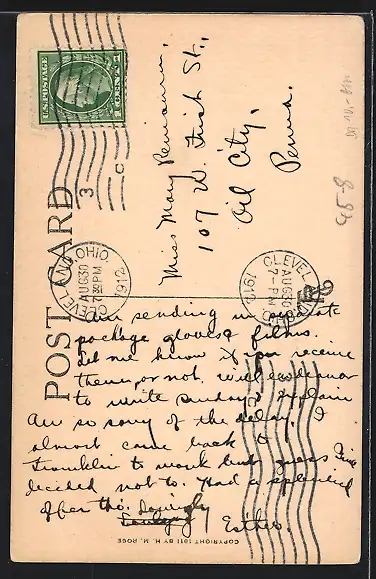 POST CARD
U.S. POSTAGE
1 CENT 1
CLEVELAND, OHIO.
AUG 30
7 30 PM
1912
CLEVELAND, O.
AUG 30
7 - PM
1912
3
C
Miss Mary
107 W. First St.,
Oil City,
Penna.
45-8
Am sending in separate
package gloves & films.
Let me know if you receive
them, or not. will endeavor
to write Sunday & explain
Am so sorry of the delay. I
almost came back to
Franklin to work but guess I've
decided not to. Had a splendid
offer tho. Lovingly
Esther
COPYRIGHT 1911 BY H. M. ROSE